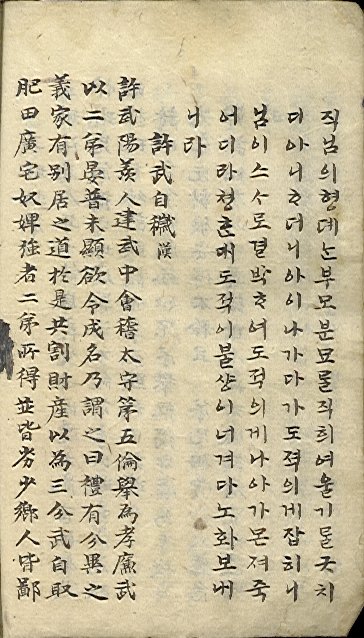 직님의형뎨난부모분묘랄직희여울기랄긋치
디아니하더니아이나가다가도젹의게잡히니
님이스사로결박하여도적의게나아가몬져죽
어디라쳥한대도적이불샹이너겨다노화보내
니라
許武自穢漢
許武陽羨人建武中會稽太守第五倫擧為孝廉武
以二弟晏普未顯欲令成名乃謂之曰禮有分異之
義家有別居之道於是共割財産以為三分武自取
肥田廣宅奴婢強者二弟所得並皆劣少鄉人皆鄙